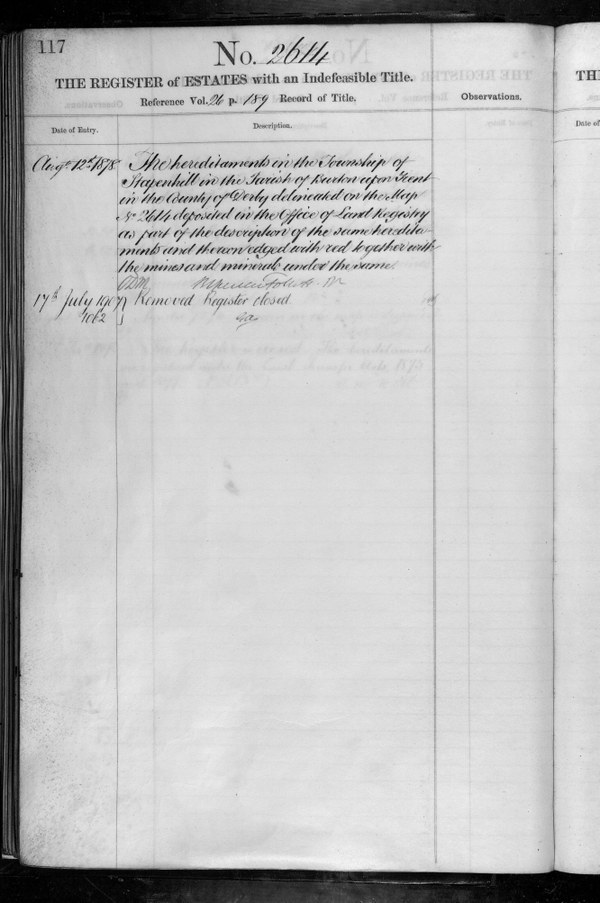 117
No. 2614
THE REGISTER of ESTATES with an Indefeasible Title.
Reference Vol. 26 p. 189 Record of Title.
Observations.
Date of Entry.
Description.
Augt. 12th 1878.
The hereditaments in the Township of
Stapenhill in the Parish of Burton upon Trent
in the County of Derby delineated on the Map
No 2614 deposited in the Office of Land Registry
as part of the description of the same heredita-
ments and thereon edged with red together with
the mines and minerals under the same.
17th July 1907
Removed Register closed
THE
Date of